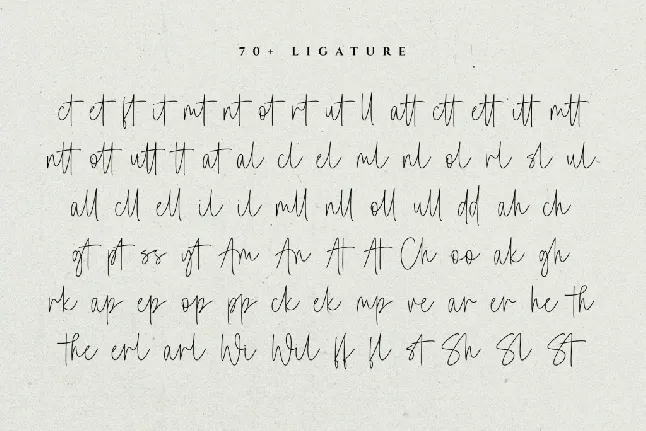 70+ LIGATURE
ct et ft it mt nt ot rt ut ll att ctt ett itt mtt
ntt ott utt tt at al cl el ml nl ol rl sl ul
all cll ell il il mll nll oll ull dd ah ch
gt pt ss yt Am An At At Ch oo ak gh
rk ap ep op pp ck ek mp ve ar er he th
the erl arl Wi Wil ff fl st Sh Sl St